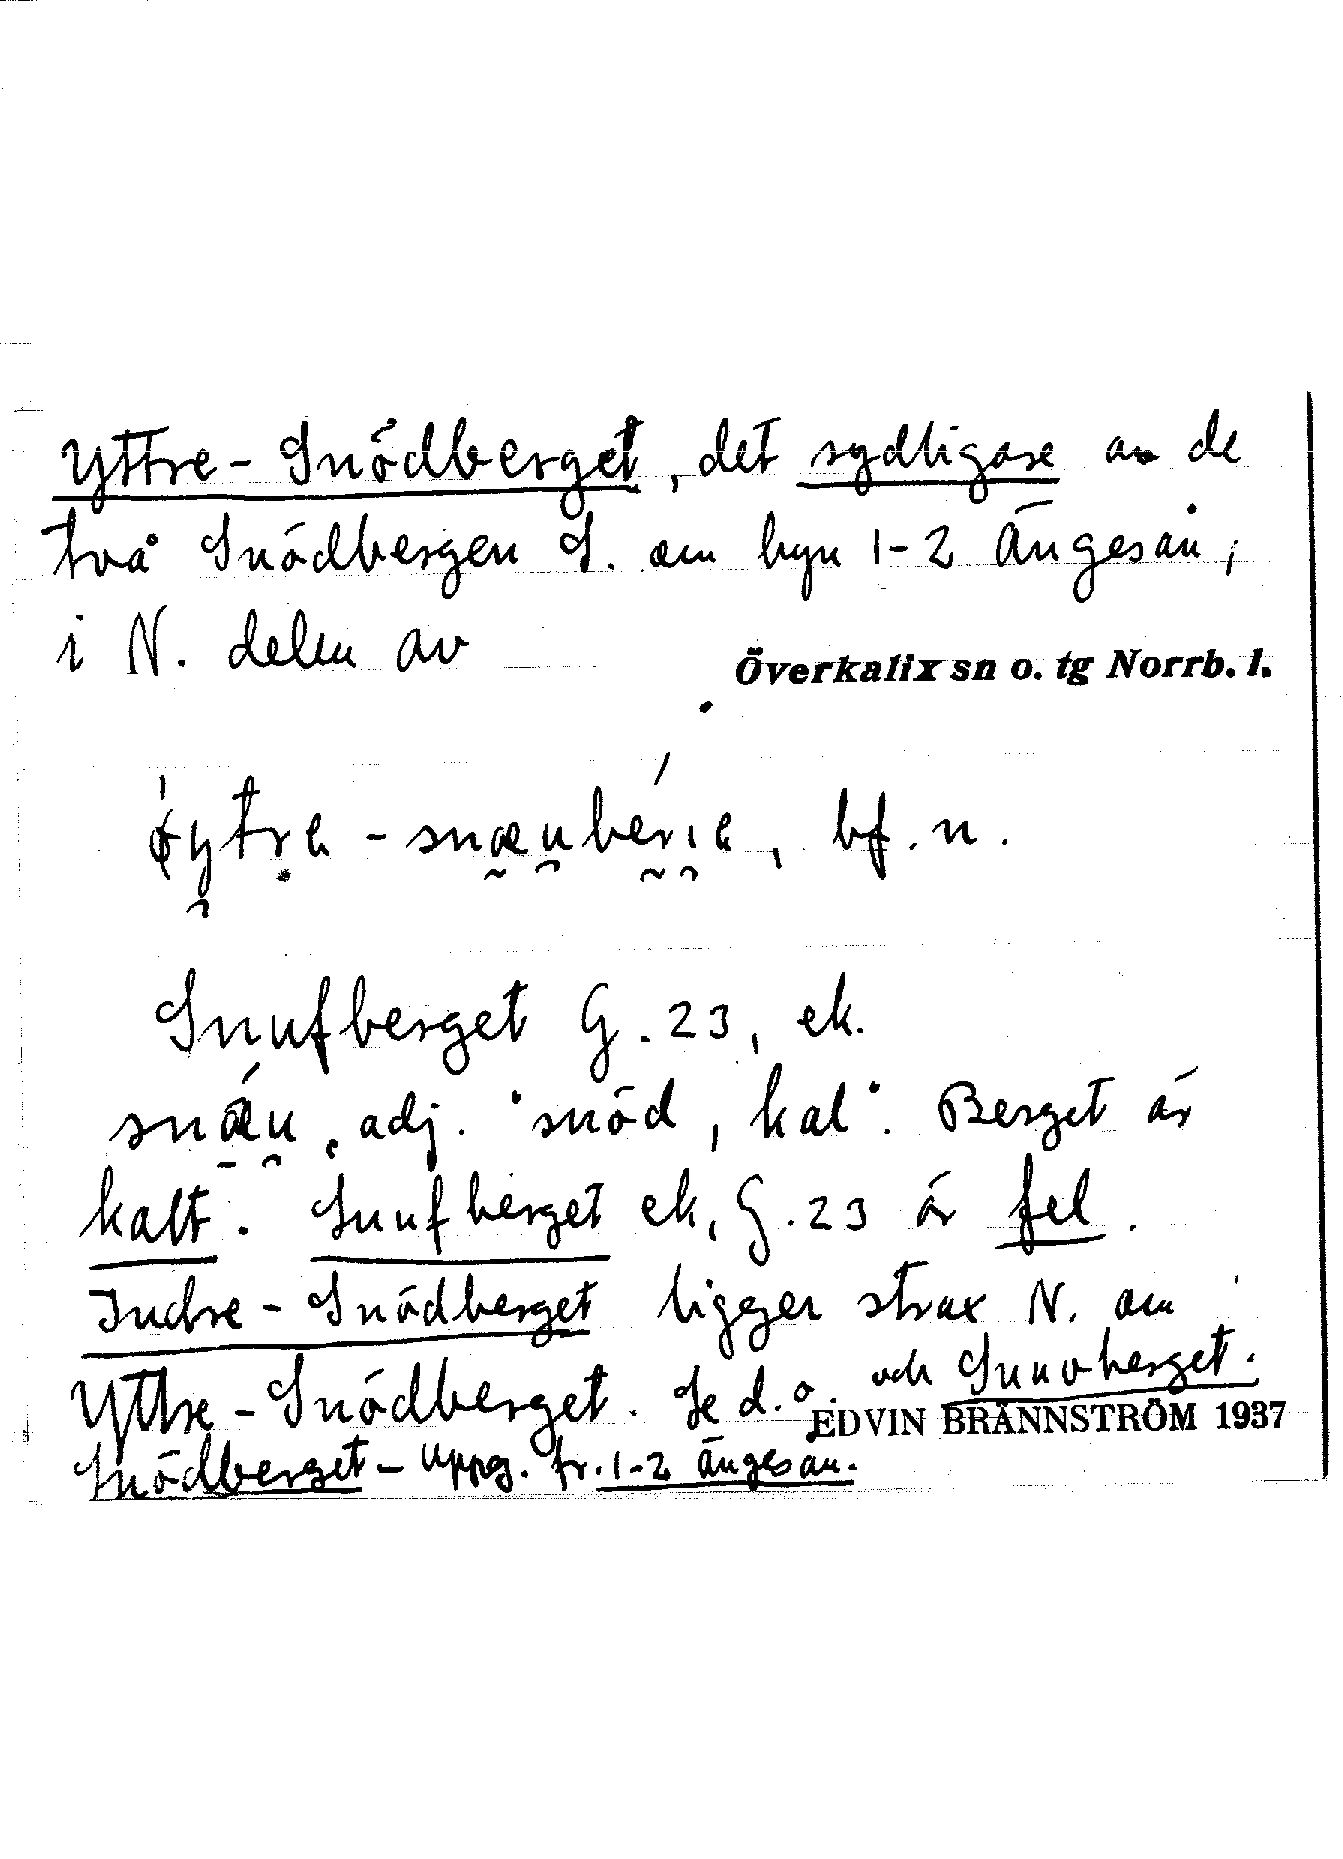 Yttre-Snödberget, det sydligare av de
två Snödbergen S. om byn 1-2 Ängesån,
i N. delen av
Överkalix sn o. tg Norrb. l.
bf. n.
Snufberget G. 23, ek.
adj. "snöd, kal". Berget är
kalt. Snufberget ek, G. 23 är fel.
Indre-Snödberget ligger strax N. om
Yttre-Snödberget. Se d. o. och Snuvberget.
EDVIN BRÄNNSTRÖM 1937
Snödberget - uppg. fr. 1-2 Ängesån.